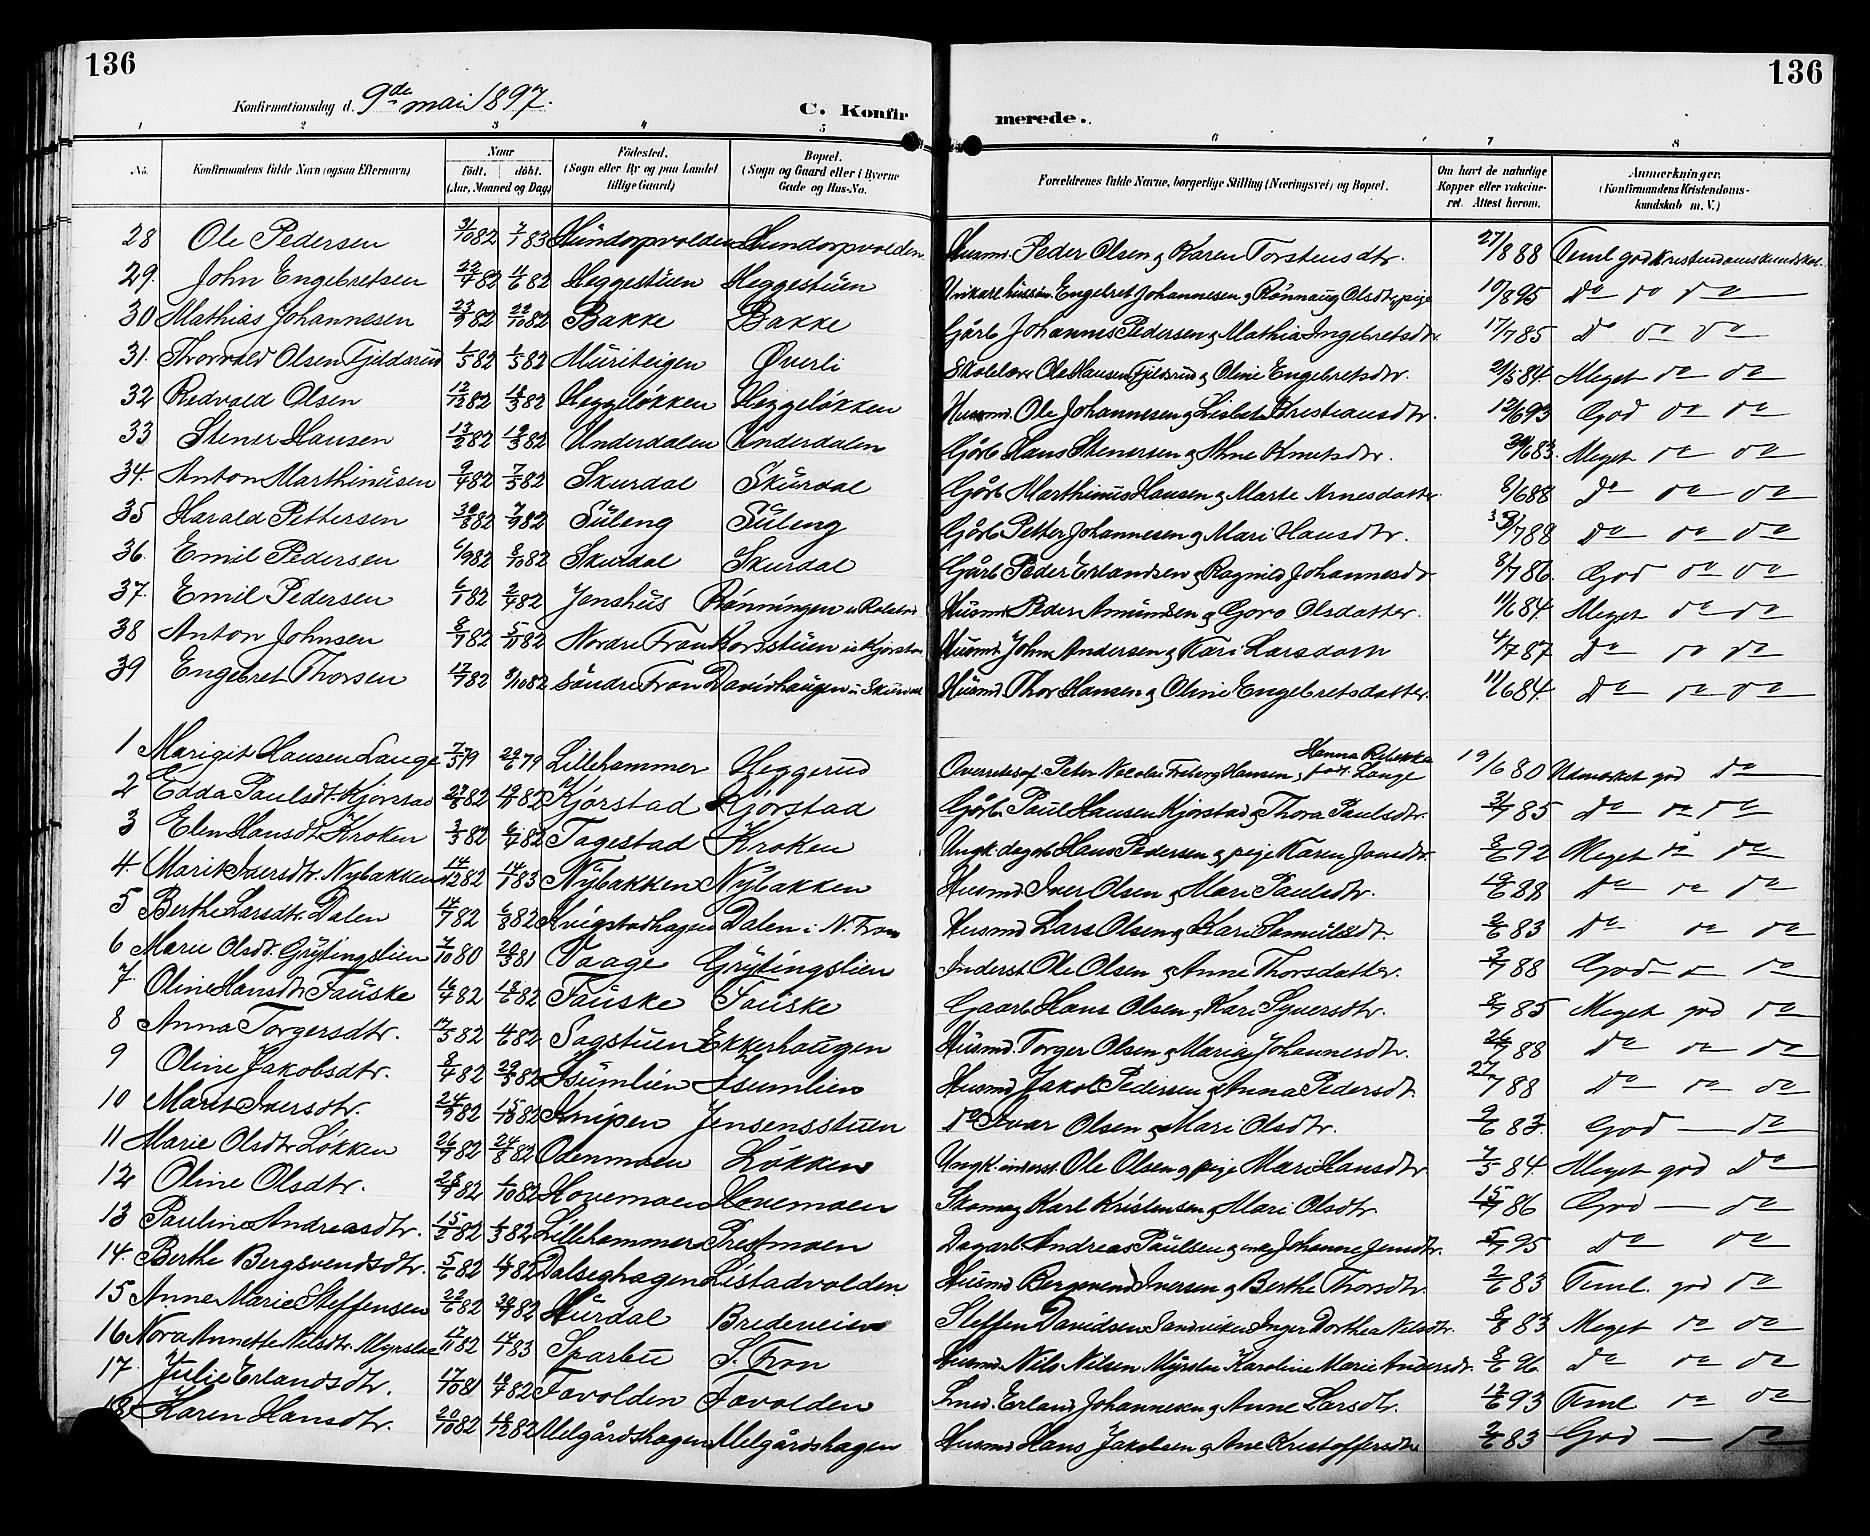 136
136
Konfirmationsdag d. 9de mai 1897.
C. Konfirmerede.
1 2 3 4 5 6 7 8
No. Konfirmandens fulde Navn (ogsaa Efternavn) Naar født. døbt. (Aar, Maaned og Dag) Fødested. (Sogn eller By og paa Landet tillige Gaard) Bopæl. (Sogn og Gaard eller i Byerne Gade og Hus-No. Forældrenes fulde Navne, borgerlige Stilling (Næringsvei) og Bopæl. Om havt de naturlige Kopper eller vaccineret. Attest herom. Anmærkninger. (Konfirmandens Kristendomskundskab m. V.)
28 Ole Pedersen 3/10 82 7/1 83 Hundorpvolden Hundorpvolden Husmd. Peder Olsen & Karen Torstensdtr. 27/8 88 Teml. god kristendomskundskab
29. John Engebretsen 22/4 82 4/6 82 Heggestuen Heggestuen Engebret Johannesen & Rønnaug Olsdtr. pige 10/8 95 do do do
30 Mathias Johannesen 23/9 82 22/10 82 Bakke Bakke Gårb. Johannes Pedersen & Mathia Ingebretsdtr. 17/7 85 do do do
31. Thorvald Olsen Fjildsrud 1/5 82 1/5 82 Muriteigen Øverli Skolelærer Ole Hansen Fjildsrud & Oline Engebretsdtr. 2/5 84. Meget do do
32 Redvald Olsen 12/12 82 18/3 82 Heggeløkken Heggeløkken Husmd. Ole Johannesen & Lisbet Kristiansdtr. 12/6 93 God do do
33 Stener Hansen 13/2 82 19/3 82 Underdalen Underdalen Gårb. Hans Stenersen & Ahne Knutsdtr. 30/6 83. Meget do do
34. Anton Marthinusen 9/4 82 7/5 82 Skurdal Skurdal Gårb. Marthinus Hansen & Marte Arnesdatter 8/6 88 do do do
35 Harald Pettersen 30/8 82 7/9 82 Suleng Suleng Gårb. Petter Johannesen & Mari Hansdtr. /7 88 do do do
36. Emil Pedersen 6/9 82 8/10 82 Skurdal Skurdal Gårb. Peder Erlandsen & Ragnild Johannesdtr 8/7 86. God do do
37. Emil Pedersen 6/1 82 2/4 82 Jenshus Rønningen Husmd. Peder Amundsen & Goro Olsdatter. 11/6 84. Meget do do
38 Anton Johnsen 8/9 82 5/11 82 Nordre Fron Korsstuen u. Kjorstad Husmd. John Andersen & Kari Larsdatr 4/7 87 do do do
39 Engebret Thorsen 12/9 82 8/10 82 Søndre Fron Davidhaugen u. Skurdal Husmd. Thor Hansen & Oline Engebretsdatter. 11/6 84. do do do
1 Marigit Hansen Lange 7/5 79 29/6 79 Lillehammer Heggerud Overretssf. Peter Nicolai Friberg Hansen & Hanna Rebekka fød. Lange 19/6 80 Udmærket god do
2 Edda Paulsdtr. Kjorstad 27/5 82 19/ 82 Kjørstad Kjørstad Gårb. Paul Hansen Kjorstad & Thora Paulsdtr. 3/7 85 do do do
3 Elen Hansdtr Kroken 3/3 82 6/4 82 Tagestad Kroken Ungk. dagarb. Hans Pedersen & pige Karen Jonsdtr. 8/6 92 Meget do do
4. Marit Iversdtr. Nybakken 14/12 82 14/1 83 Nybakken Nybakken Husmd. Iver Olsen & Mari Paulsdtr. 19/6 88 do do do
5 Berthe Larsdtr. Dalen 14/7 82 6/8 82 Kvigstadhagen Dalen i N. Fron Husmd Lars Olsen & Kari Samuelsdtr. 2/6 83 do do do
6 Marie Olsdtr. Grytingslien 7/10 80 20/3 81 Vaage Grytingslien Inderst. Ole Olsen & Anne Thorsdatter. 3/7 88 God do
7 Oline Hansdtr Fauske 16/4 82 18/6 82 Fauske Fauske Gaarb. Hans Olsen & Kari Syversdtr. 8/7 85 Meget god do
8 Anna Torgersdtr. 17/5 82 4/6 82 Sagstuen Ekkerhaugen Husmd. Torger Olsen & Maria Johannesdtr. 26/7 88 do do do
9 Oline Jakobsdtr. 8/4 82 29/5 82 Isumlien Isumlien Husmd Jakob Pedersen & Anna Pedersdt. 27/7 88 do do do
10 Marit Iversdtr. 24/9 82 15/10 82 Knipen Jensensstuen do Ivar Olsen & Mari Olsdtr. 2/6 83. God do
11 Marie Olsdtr Løkken 26/7 82 24/8 82 Odenmoen Løkken Ungk. inderst. Ole Olsen & pige Mari Hansdtr 7/5 84. Meget god do
12 Oline Olsdtr. 28/9 82 1/10 82 Hovemoen Hovemoen Skomag. Karl Kristensen & Mari Olsdtr 15/7 86 God do
13 Pauline Andreasdtr. 15/2 82 4/3 82 Lillehammer Prestmoen Dagarb. Andreas Paulsen & Johanne Jensdtr. 5/7 95 do do
14. Berthe Bergsvendsdtr. 5/6 82 4/7 82 Dalseghagen Listadvolden Husmd Bergsvend Iversen & Berthe Thorsdtr. 2/6 83 Teml. god do
15 Anne Marie Steffensen 22/6 82 30/7 82 Hurdal Bredeveien Steffen Davidsen Sandviken Inger Dorthea Nilsdtr. 8/8 83 Meget do do
16 Nora Annette Nilsdtr. Myrslue 17/11 82 14/1 83 Sparbu S. Fron Husmd Nils Nilsen Myrslu Karoline Marie Andersdtr. 8/6 96 do do do
17. Julie Erlandsdtr. 17/10 81 18/7 82 Tovolden Tovolden Smed. Erland Johannesen & Anne Larsdtr. 12/6 93 Teml. do do
18 Karen Hansdtr. 20/10 82 18/12 82 Melgårdshagen Melgårdshagen Husmd Hans Jakobsen & Ane Kristoffersdtr 2/6 83 God do